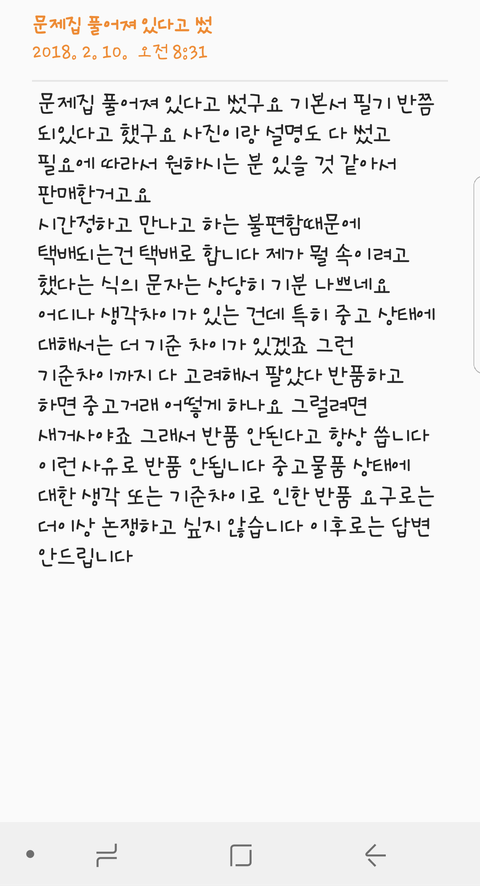 문제집 풀어져 있다고 썼
2018. 2. 10. 오전 8:31
문제집 풀어져 있다고 썼구요 기본서 필기 반쯤
되있다고 했구요 사진이랑 설명도 다 썼고
필요에 따라서 원하시는 분 있을 것 같아서
판매한거고요
시간정하고 만나고 하는 불편함때문에
택배되는건 택배로 합니다 제가 뭘 속이려고
했다는 식의 문자는 상당히 기분 나쁘네요
어디나 생각차이가 있는 건데 특히 중고 상태에
대해서는 더 기준 차이가 있겠죠 그런
기준차이까지 다 고려해서 팔았다 반품하고
하면 중고거래 어떻게 하나요 그럴려면
새거사야죠 그래서 반품 안된다고 항상 씁니다
이런 사유로 반품 안됩니다 중고물품 상태에
대한 생각 또는 기준차이로 인한 반품 요구로는
더이상 논쟁하고 싶지 않습니다 이후로는 답변
안드립니다